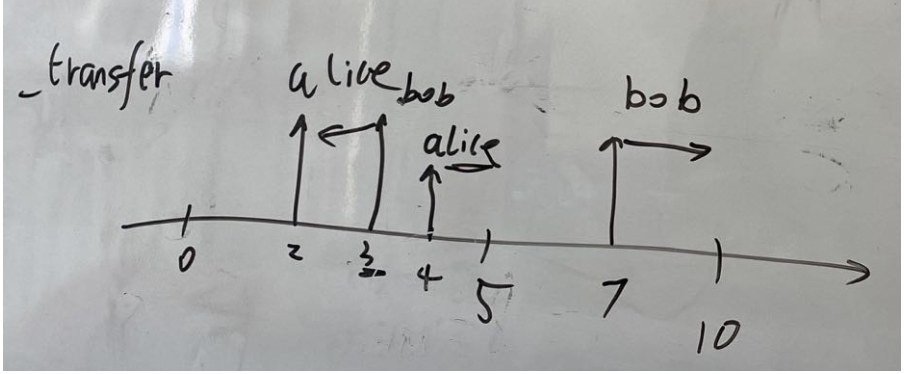 _transfer
alice
bob
bob
alice
0
2
3
4
5
7
10